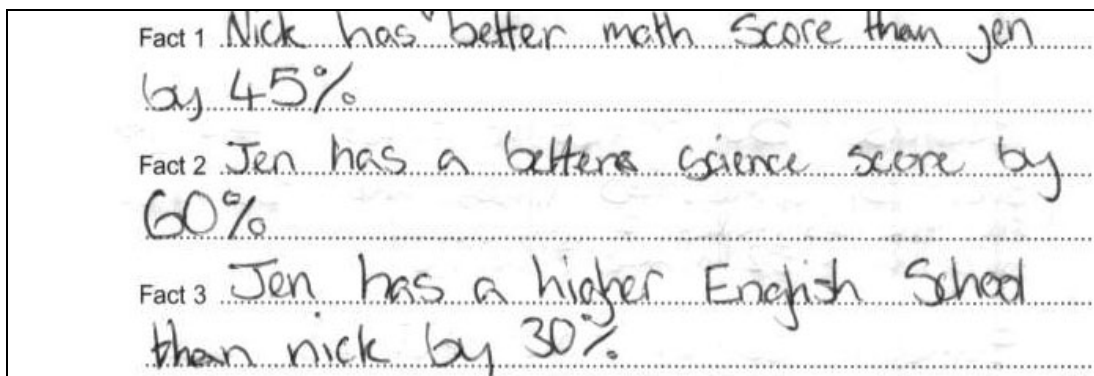 Fact 1 Nick has better math score than jen
by 45%
Fact 2 Jen has a betters science score by
60%
Fact 3 Jen has a higher English School
than nick by 30%